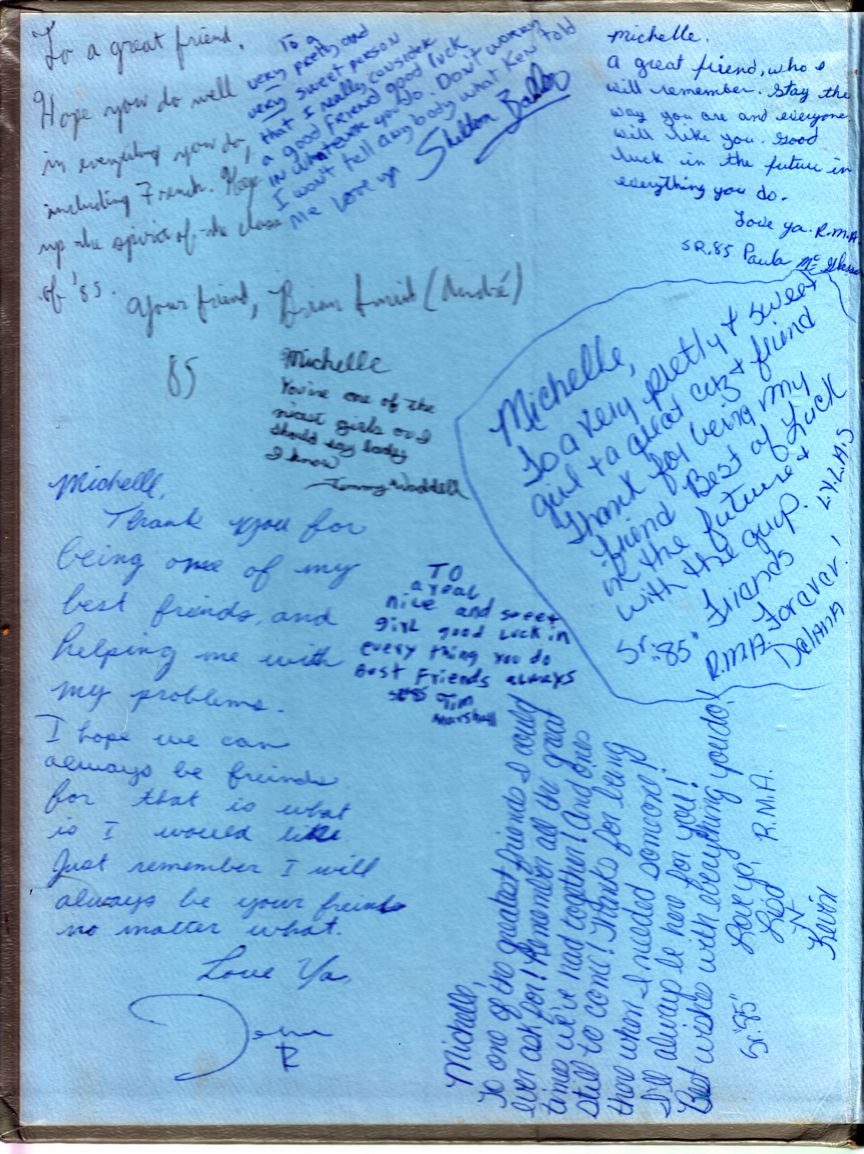 To a great friend,
Hope you do well
in everything you do,
including French. Keep
up the spirit of the class
of '85.
Your friend, Brian (André)
85
To a
very pretty and
very sweet person
that I really consider
a good friend good luck
in whatever you do. Don't worry
I won't tell anybody what Ken told
me Love ya
Sheldon
Michelle.
A great friend, who I
will remember. Stay the
way you are and everyone
will like you. Good
luck in the future in
everything you do.
Love ya. R.M.A.
SR.85 Paula
Michelle
You're one of the
nicest girls or I
should say lady
I know
Tommy Waddell
Michelle,
To a very pretty + sweet
girl + a great cuz + friend
Thank for being my
friend Best of Luck
in the future +
with the guys. L.Y.L.A.S
Sr.:85" Friends
R.M.A. Forever!
Delana
Michelle,
Thank you for
being one of my
best freinds, and
helping me with
my problems.
I hope we can
always be freinds
for that is what
is I would like
Just remember I will
always be your freinds
no matter what.
Love Ya,
R
TO
a real
nice and sweet
girl good Luck in
every thing you do
Best Friends always
SR85 Tim
Marshall
Michelle,
To one of the greatest friends I could
ever ask for! Remember all the great
times we've had together! And ones
still to come! Thanks for being
there when I needed someone!
I'll always be here for you!
Best wishes with everything you do!
Love ya,
Sr.'85" R.M.A.
N
Kevin